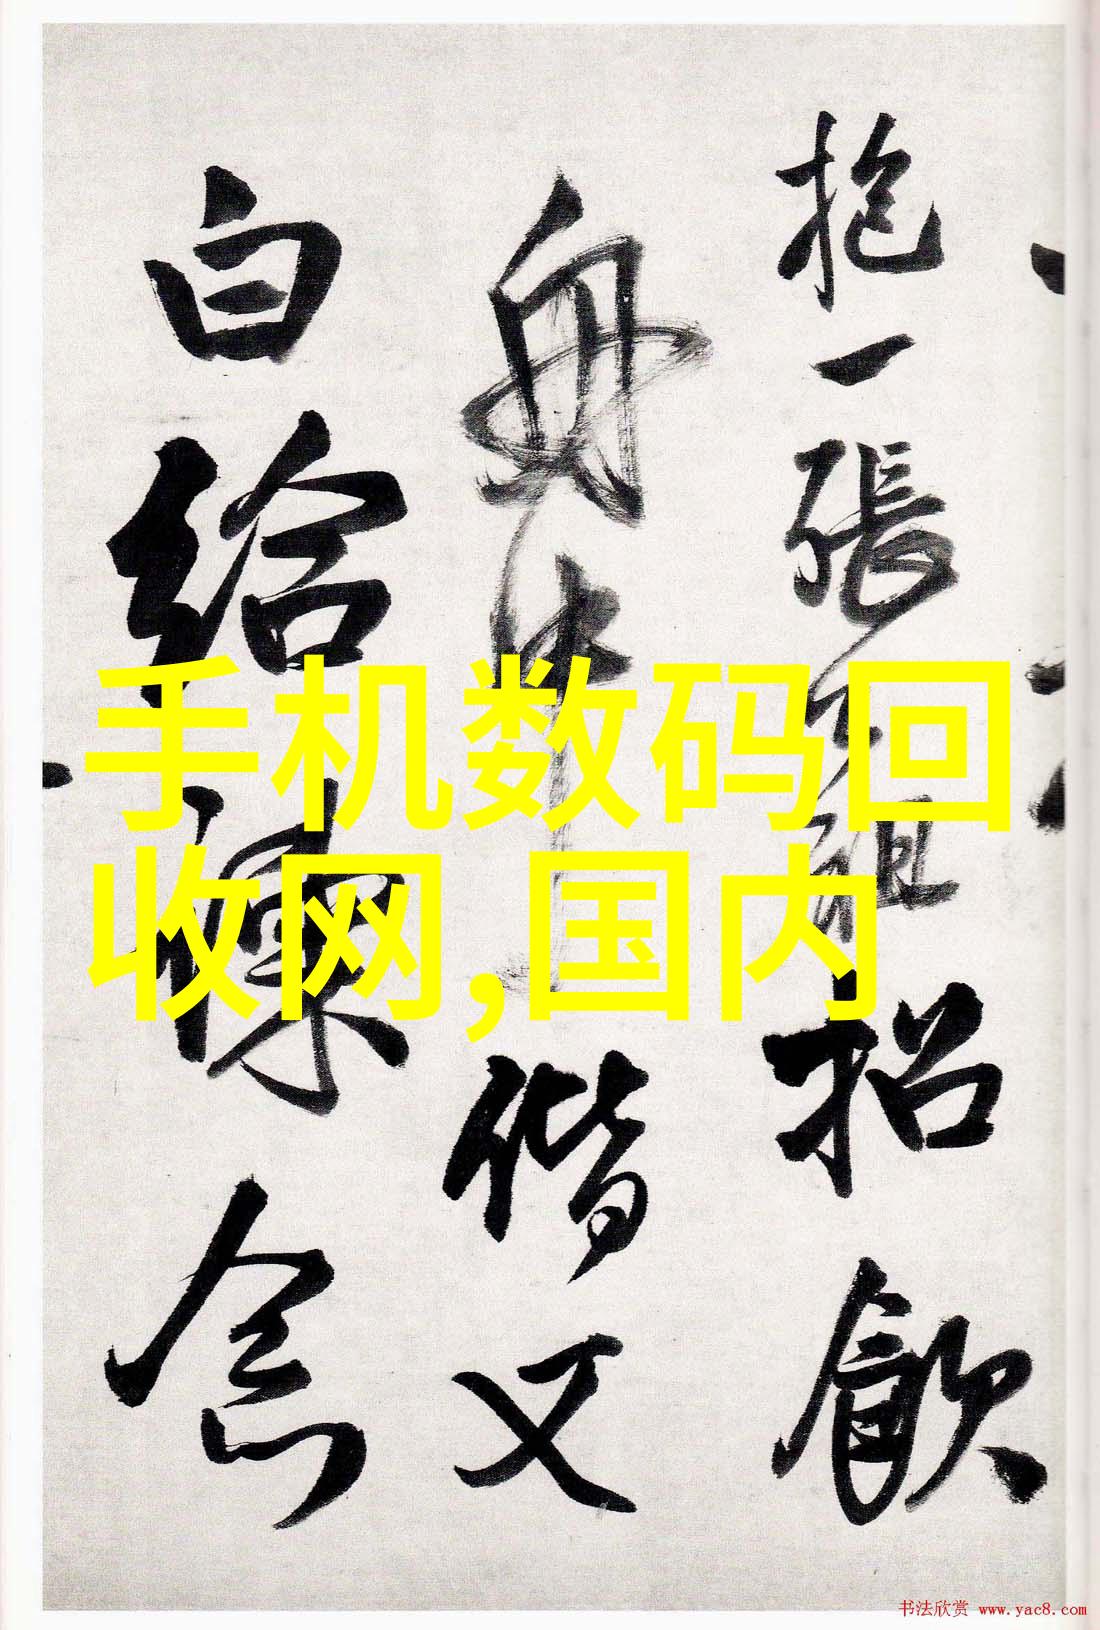 抱一張
招飲
舟中
偕又
白給諫念
手机数码回
收网,国内
书法欣赏 www.yac8.com